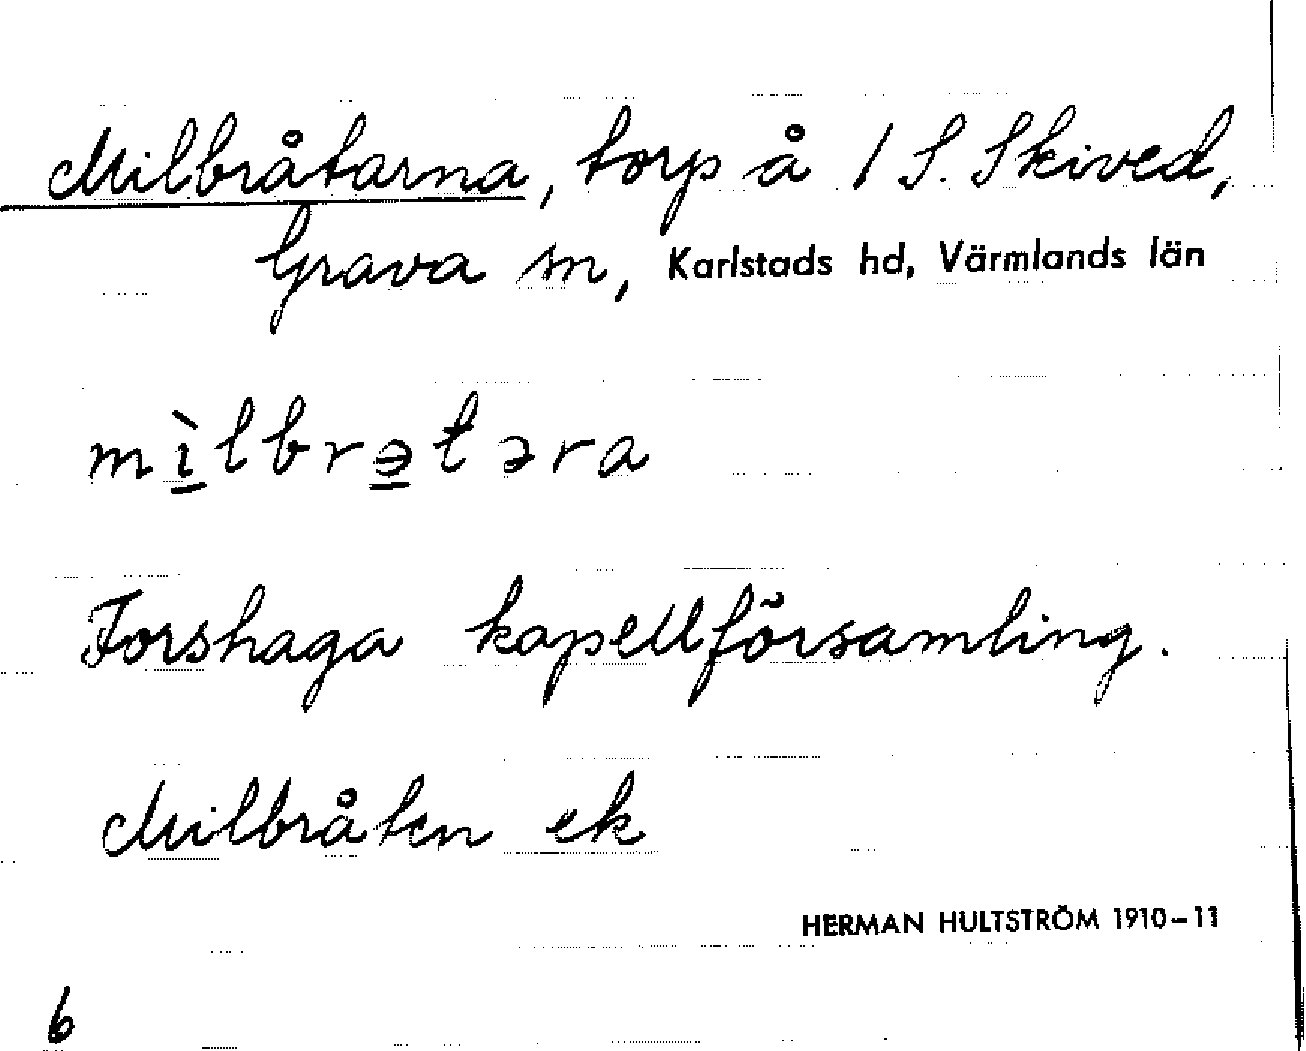 Milbråtarna, torp å 1 S. Skived,
Grava sn, Karlstads hd, Värmlands län
mı̠̀lbrə̠təra
Forshaga kapellförsamling.
Milbråten ek
HERMAN HULTSTRÖM 1910–11
6